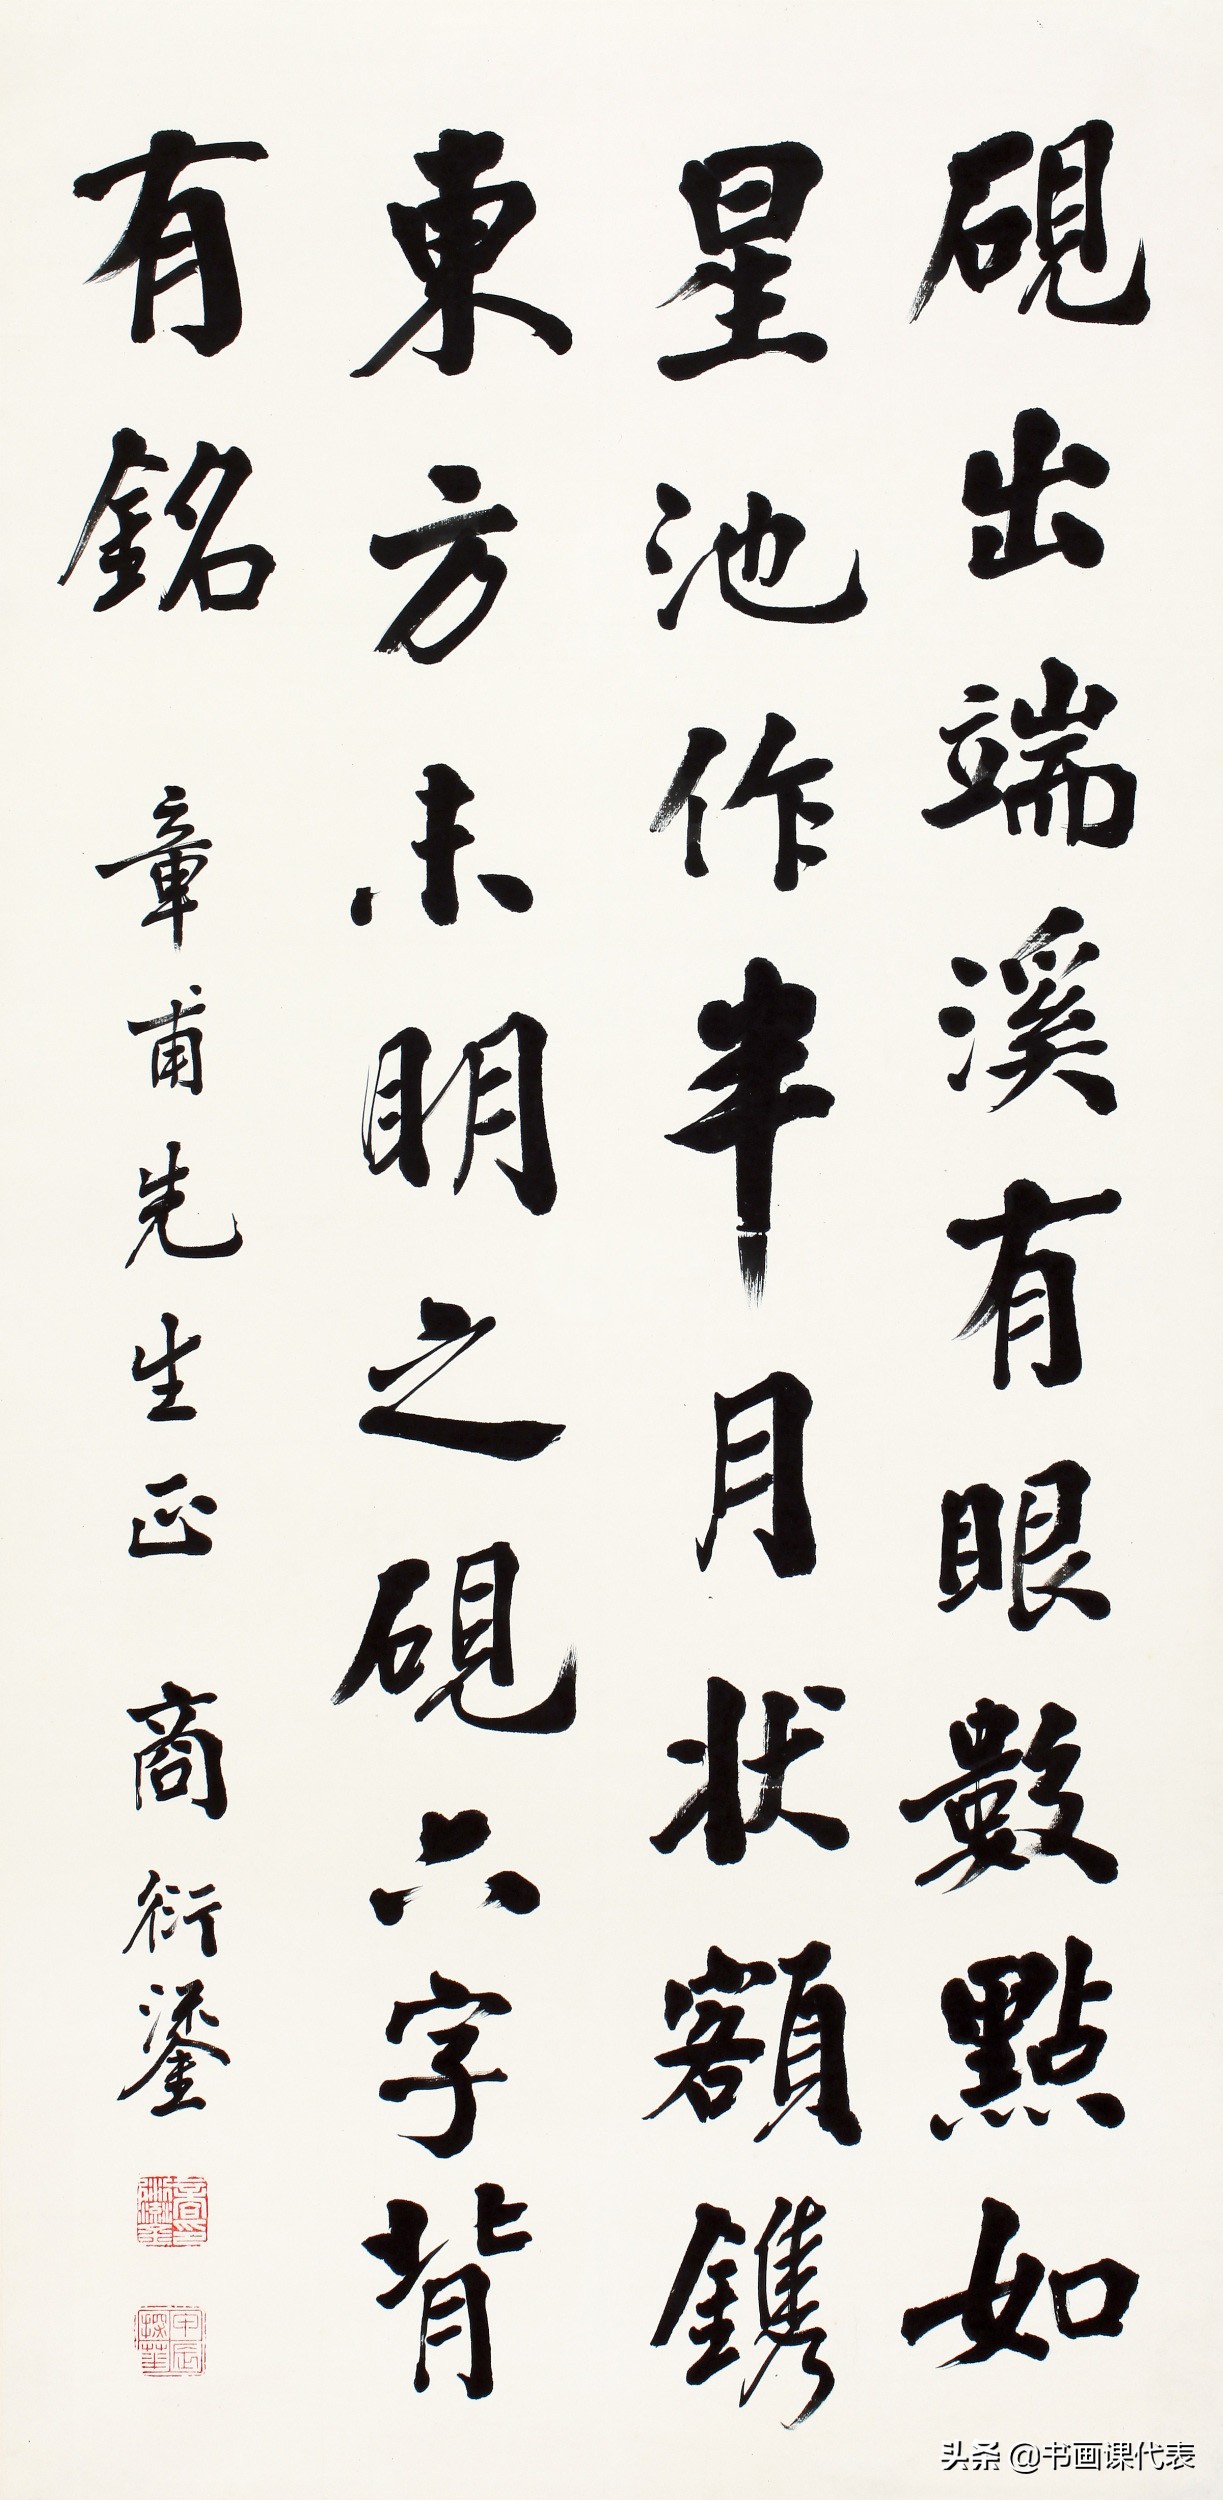 硯出端溪有眼數點如
星池作半月狀額鐫
東方未明之硯六字背
有銘
章甫先生正 商衍鎏
头条 @书画课代表